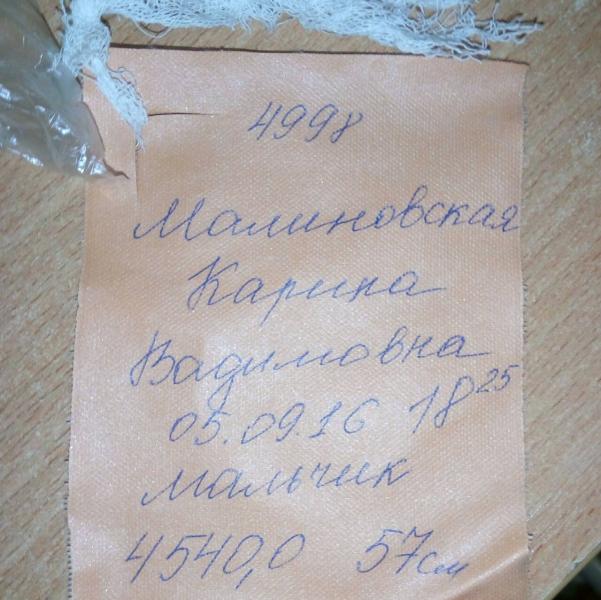 4998
Малиновская
Карина
Вадимовна
05.09.16 18 25
мальчик
4540,0 57см